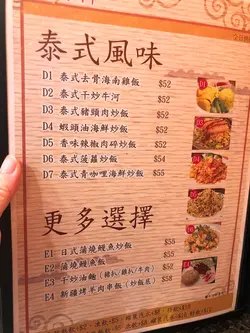 泰式風味
D1 泰式去骨海南雞飯 $52
D2 泰式干炒牛河 $52
D3 泰式豬頸肉炒飯 $52
D4 蝦頭油海鮮炒飯 $52
D5 香味辣椒肉碎炒飯 $52
D6 泰式菠蘿炒飯 $54
D7 泰式青咖喱海鮮炒飯 $55
更多選擇
E1 日式蒲燒鰻魚炒飯 $55
E2 蒲燒鰻魚飯 $55
E3 干炒油麵 $52
E4 新疆烤羊肉串飯 (炒飯底) $58